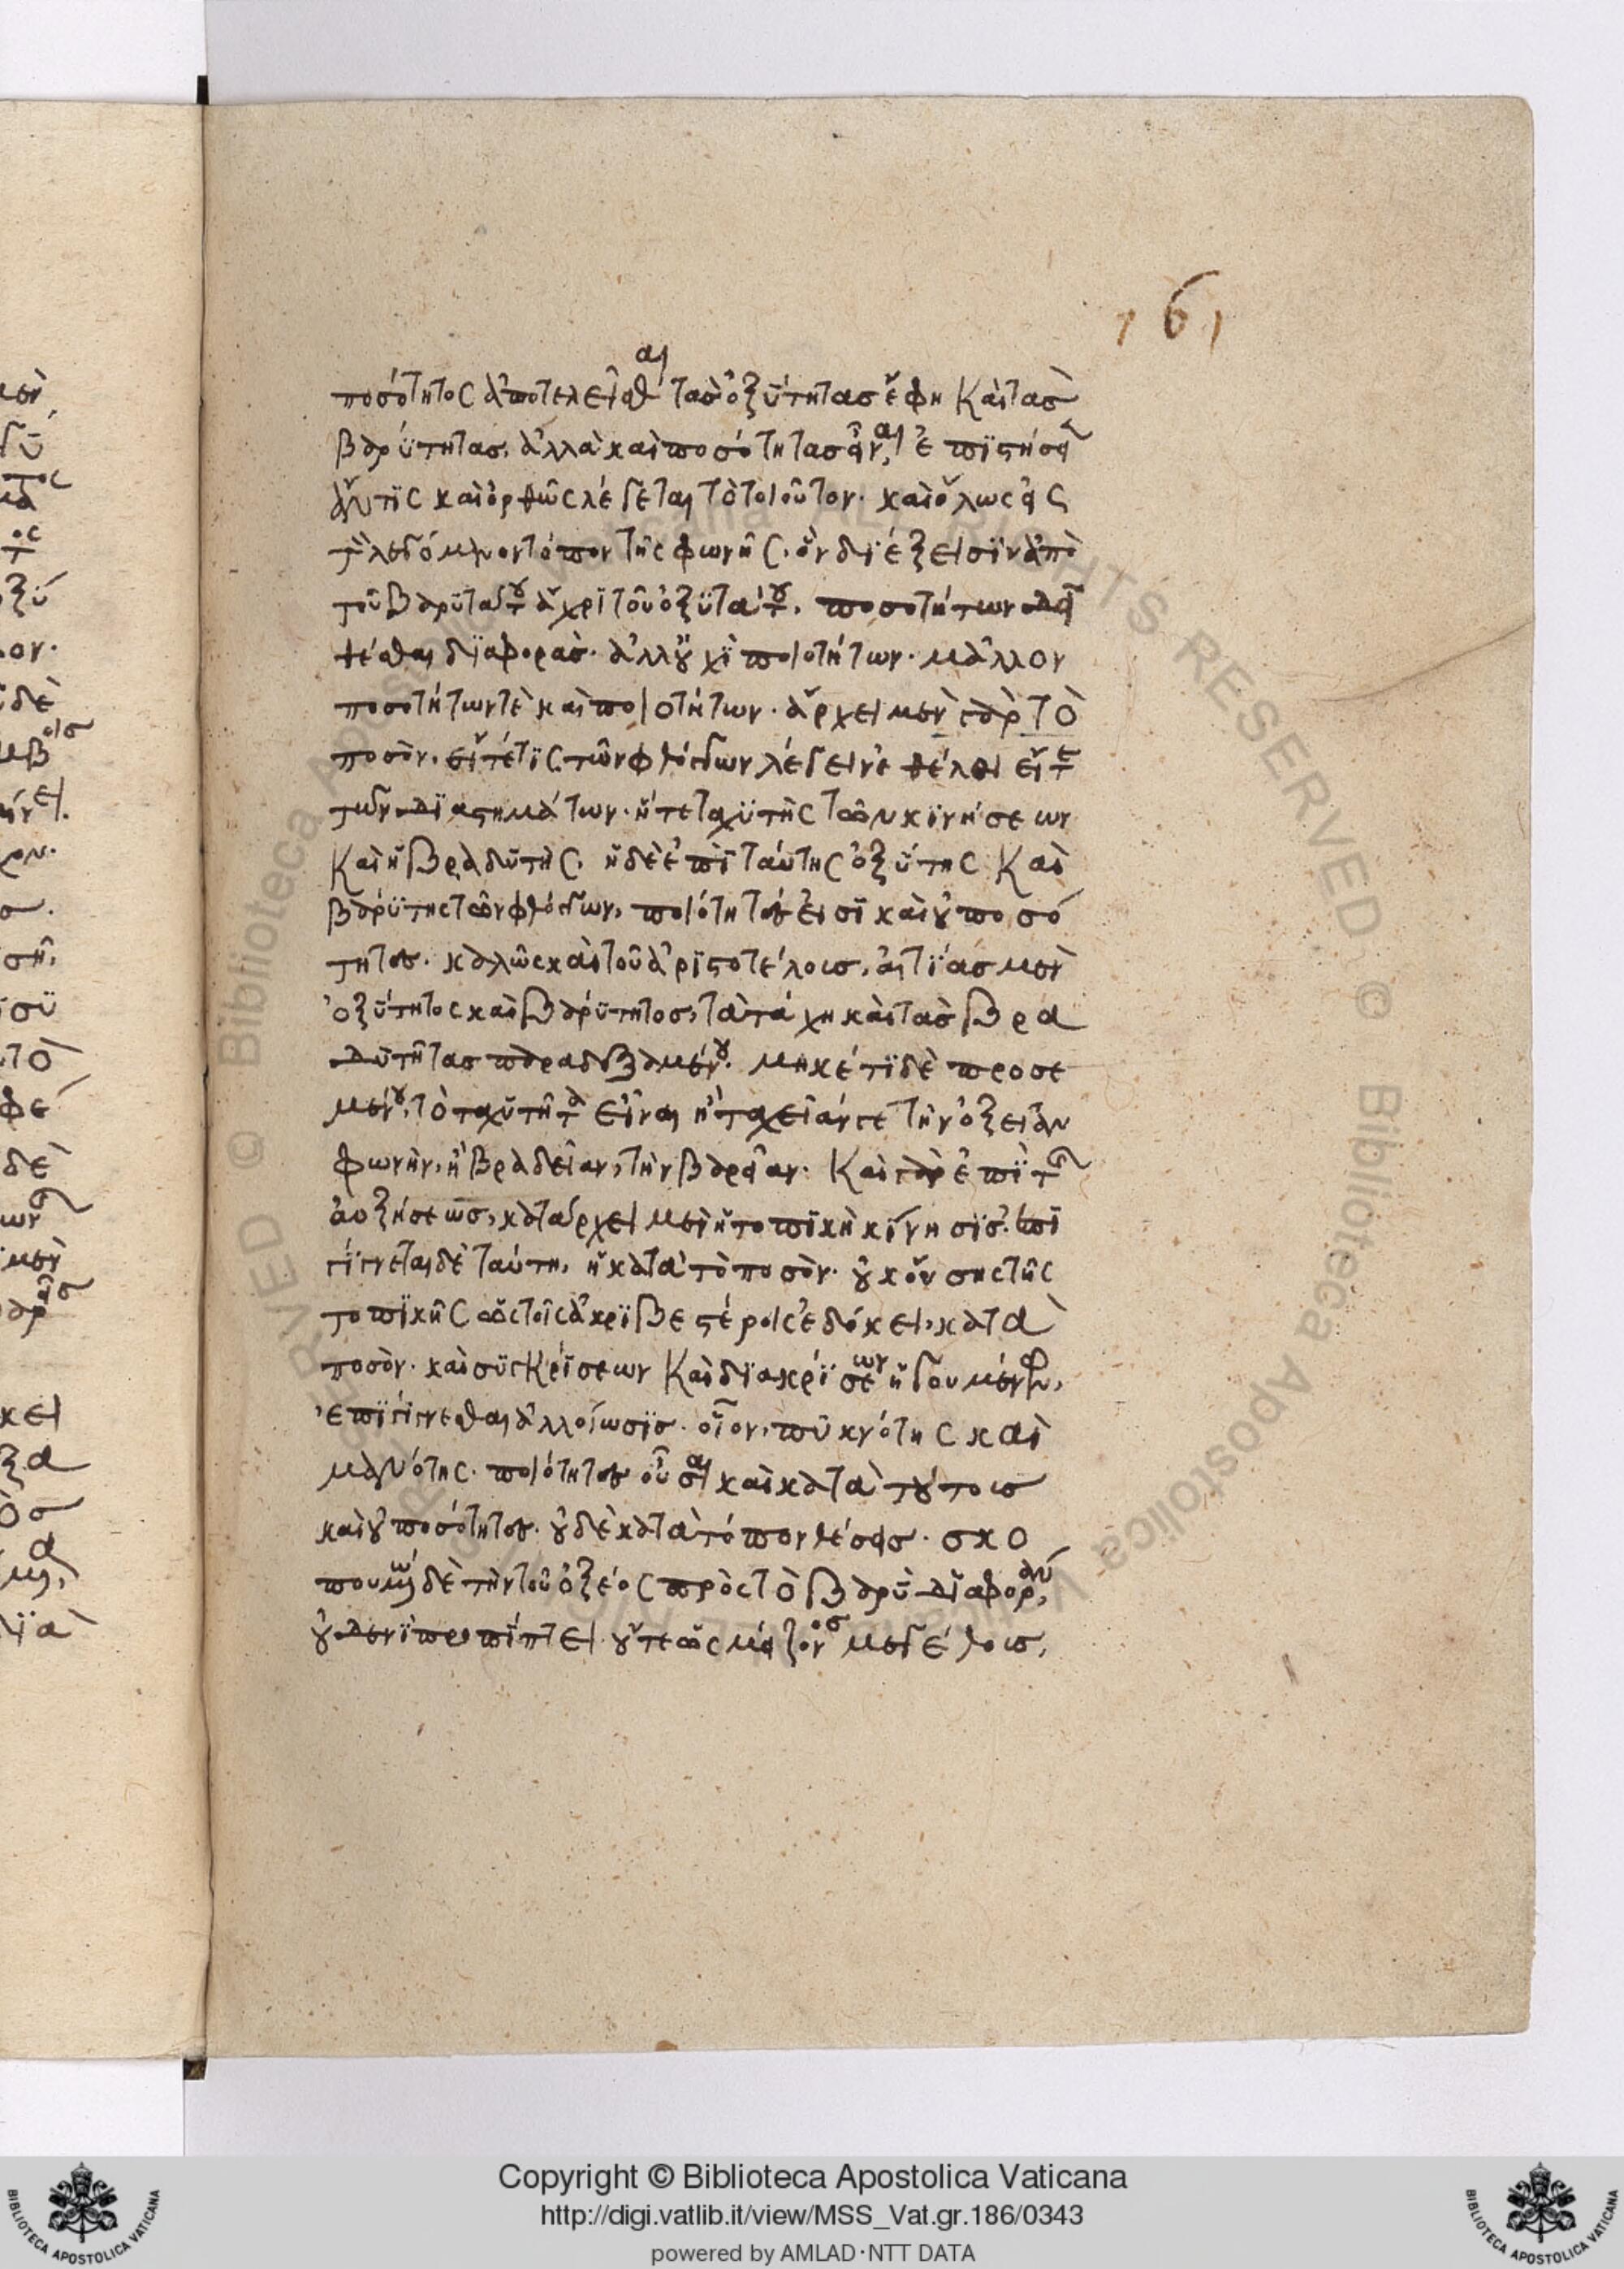 161
ποσότητος ἀποτελεῖσθαι τὰς ὀξύτητας ἔφη καὶ τὰς
βαρύτητας, ἀλλὰ καὶ ποσότητας εἶναι, ἐπιστήσει
ἄν τις καὶ ὀρθῶς λέγεται τὸ τοιοῦτον. καὶ ὅλως εἰς
τὸν λεγόμενον τόπον τῆς φωνῆς. ὃν διέξεισιν ἀπὸ
τοῦ βαρυτάτου ἄχρι τοῦ ὀξυτάτου, ποσοτήτων δεῖ
θέσθαι διαφοράς. ἀλλ' οὐχὶ ποιοτήτων. μᾶλλον
ποσοτήτων τὲ καὶ ποιοτήτων. ἄρχει μὲν γὰρ τὸ
ποσόν. εἴτέ τις τῶν φθόγγων λέγειν ἐθέλοι εἴτε
τῶν διαστημάτων. ἥ τε ταχυτὴς τῶν κινήσεων
καὶ ἡ βραδυτὴς. ἡ δὲ ἐπὶ ταύτης ὀξύτης καὶ
βαρύτης τῶν φθόγγων, ποιότητες εἰσὶ καὶ οὐ ποσό
τητες. καλῶς καὶ τοῦ ἀριστοτέλους, αἰτίας μὲν
ὀξύτητος καὶ βαρύτητος, τὰ τάχη καὶ τὰς βρα
δυτῆτας παραδεξαμένου. μηκέτι δὲ προσε
μένου, τὸ ταχυτῆτα εἶναι ἢ ταχεῖάν γε τὴν ὀξεῖαν
φωνὴν, ἢ βραδεῖαν, τὴν βαρεῖαν. καὶ γὰρ ἐπὶ τῆς
αὐξήσεως, κατάρχει μὲν ἡ τοπικὴ κίνησις. ἐπι
γίγνεται δὲ ταύτη, ἡ κατὰ τὸ ποσόν. οὐκ οὔσης τῆς
τοπικῆς ὡς τοῖς ἀκριβεστέροις ἐδόκει, κατὰ
ποσόν. καὶ συγκρίσεων καὶ διακρίσεων ἡγουμένων,
ἐπιγίγνεσθαι ἀλλοίωσις. οἷον, πυκνότης καὶ
μανότης. ποιότητες οὖσαι καὶ κατὰ τούτους
καὶ οὐ ποσότητες. οὐδὲ κατὰ τόπον θέσεις. σκο
πουμένω δὲ τὴν τοῦ ὀξέος πρὸς τὸ βαρὺ διαφοράν,
οὐδενὶ προπίπτει. οὔτε ὡς μείζονος μεγέθους,
Copyright © Biblioteca Apostolica Vaticana
http://digi.vatlib.it/view/MSS_Vat.gr.186/0343
powered by AMLAD·NTT DATA